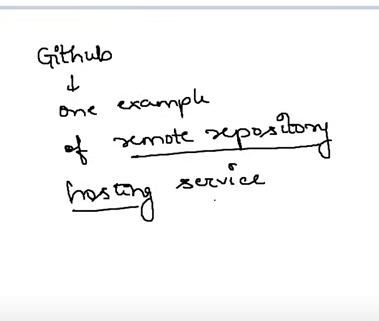 Github
↓
one example
of remote repository
hosting service